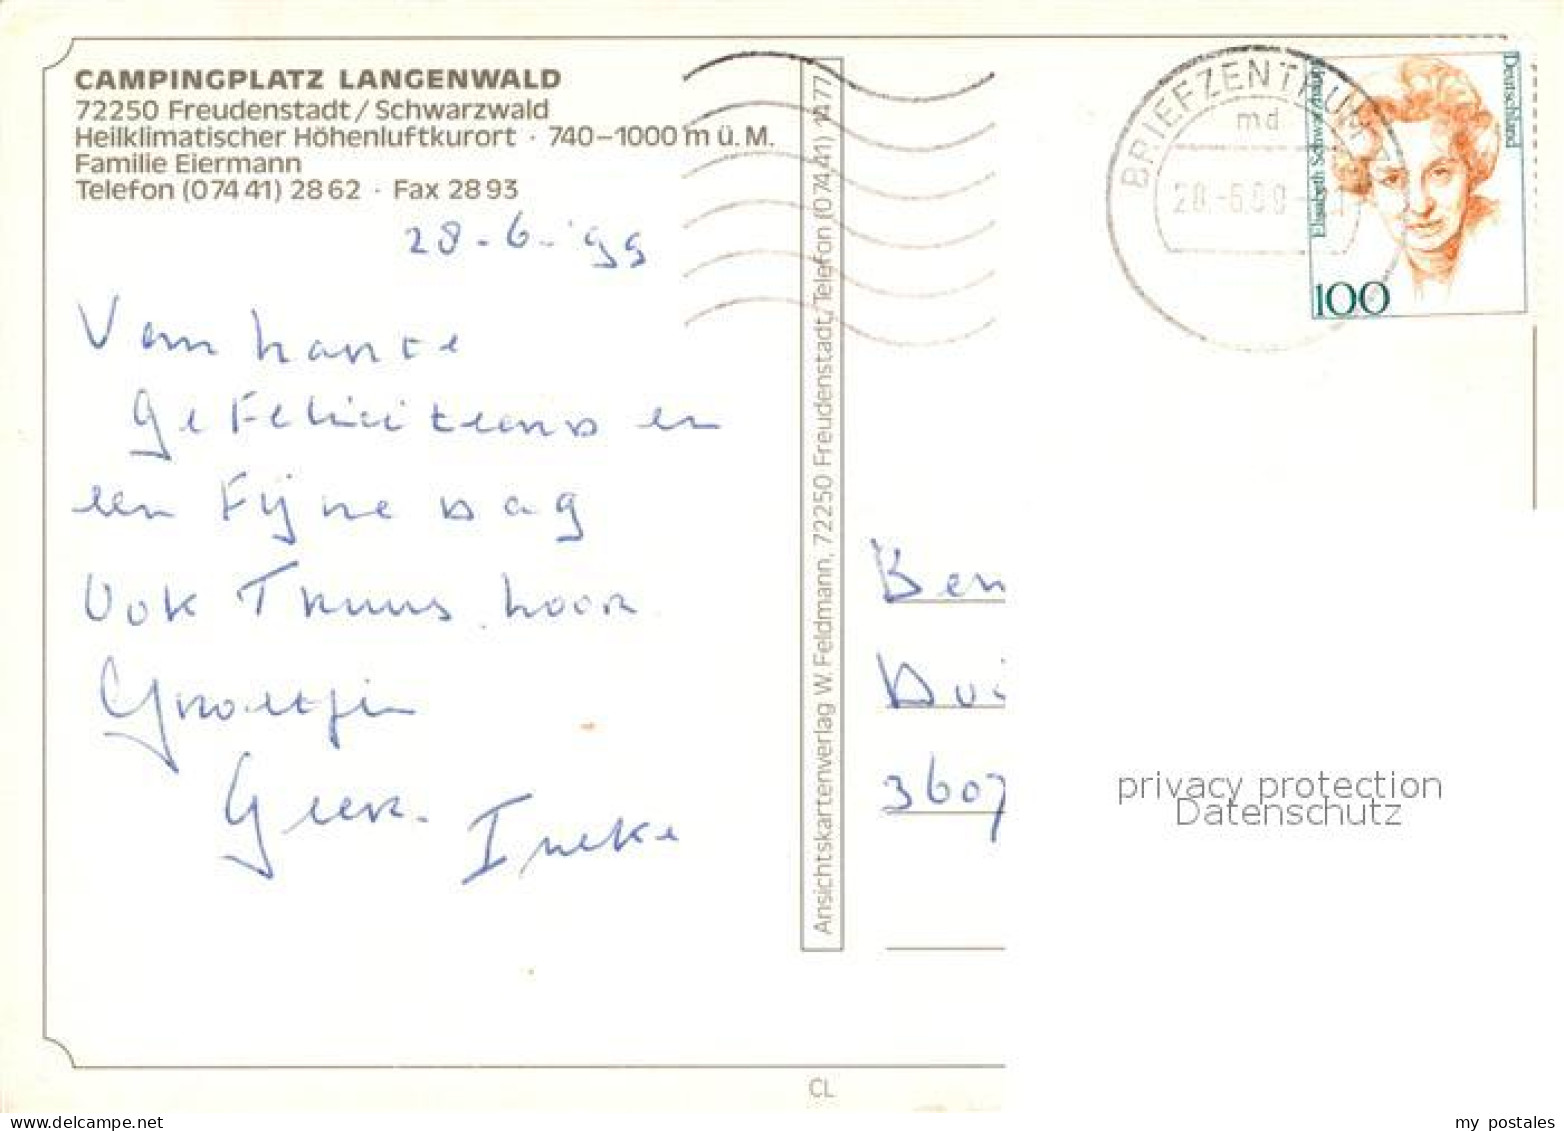 CAMPINGPLATZ LANGENWALD
72250 Freudenstadt / Schwarzwald
Heilklimatischer Höhenluftkurort · 740–1000 m ü. M.
Familie Eiermann
Telefon (07441) 2862 · Fax 2893
28-6-'99
Van harte
gefeliciteerd en
een fijne dag
Ook Truus hoor
Groetjes
Geer. Ineke
Ansichtskartenverlag W. Feldmann, 72250 Freudenstadt, Telefon (07441) 1477
BRIEFZENTRUM
md
28.-6.99
Deutschland
Elisabeth Schwarzhaupt
100
Ben
Dui
3607
privacy protection
Datenschutz
CL
www.delcampe.net
my_postales